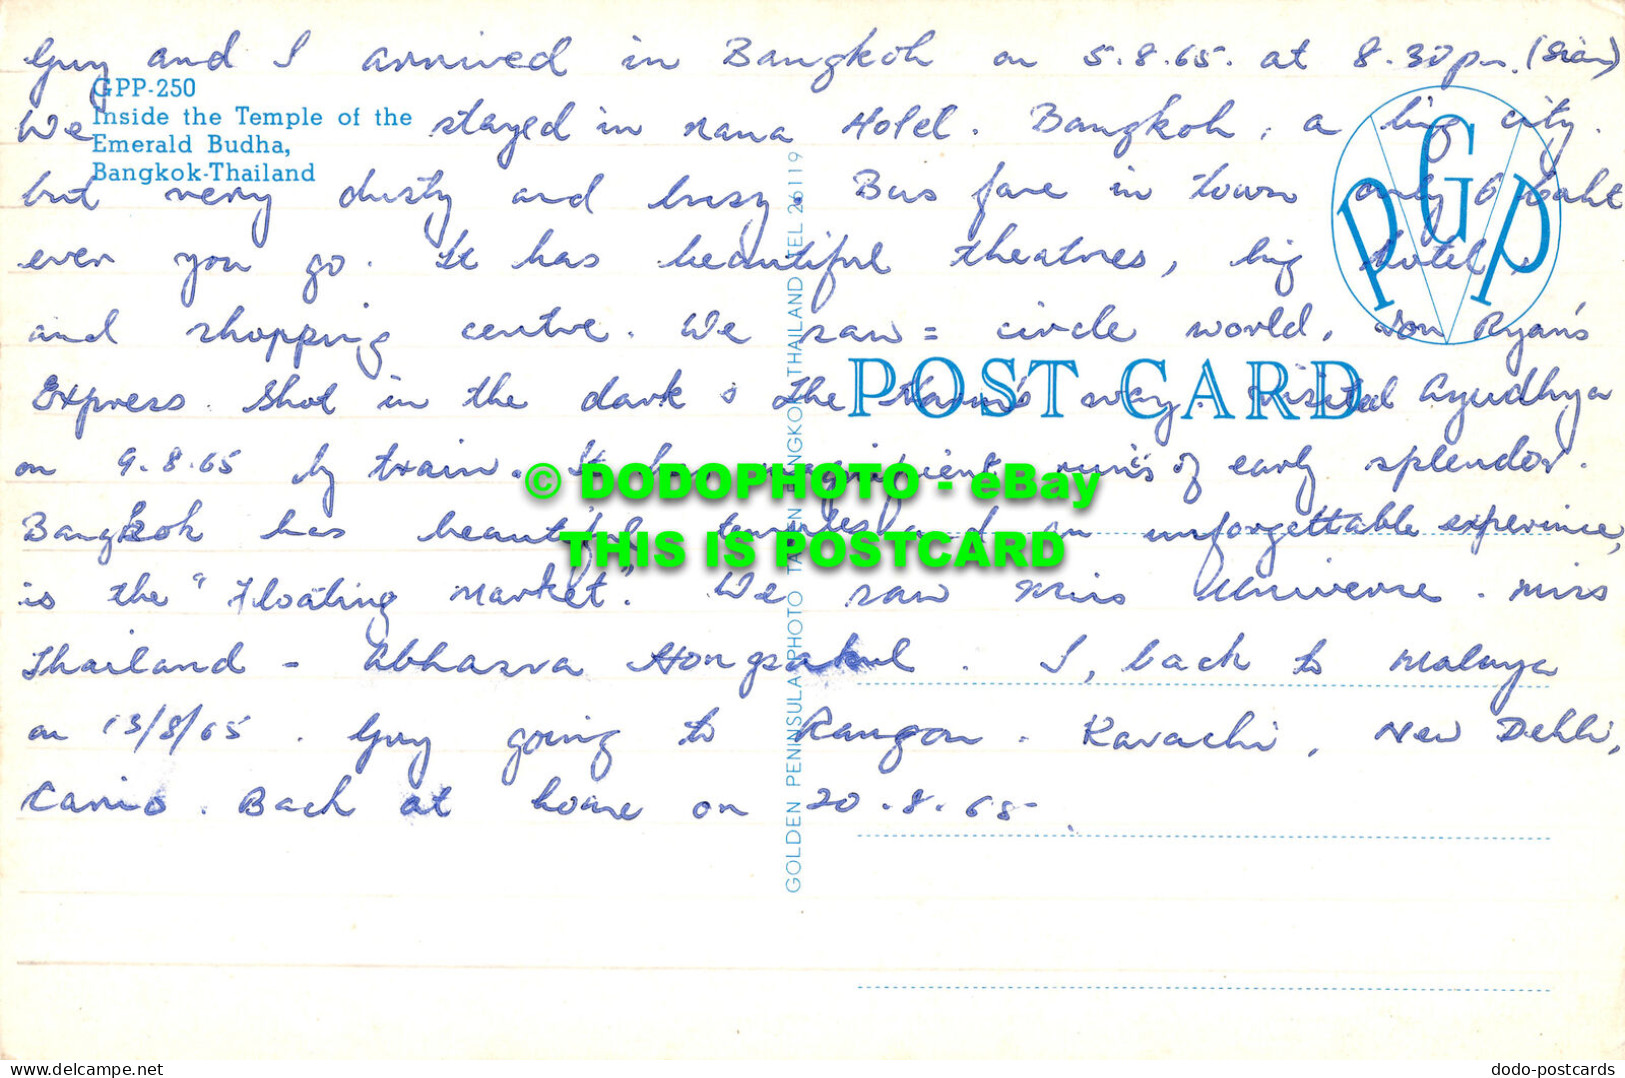 Guy and I arrived in Bangkok on 5.8.65. at 8.30pm. (Siam)
GPP-250
Inside the Temple of the
Emerald Budha,
Bangkok-Thailand
We stayed in Nana Hotel. Bangkok, a big city.
but very dusty and busy Bus fare in town only 6 baht
ever you go. It has beautiful theatres, big hotel,
and shopping centre. We saw = circle world, Von Ryan's
Express. Shot in the dark & The way. Visited Ayudhya
on 9.8.65 by train. It has magnificient ruins of early splendor.
Bangkok has beautiful temples and an unforgettable experince,
is the "Floating Market". We saw Miss Universe. Miss
Thailand - Abhasra Hongsakul. I, back to Malaya
on 13/8/65. Guy going to Rangon. Karachi, New Dehli,
Cario. Back at home on 20.8.65.
PGP
POST CARD
GOLDEN PENINSULA PHOTO TAKEN BANGKOK THAILAND TEL. 26119
© DODOPHOTO - eBay
THIS IS POSTCARD
delcampe.net
dodo-postcards